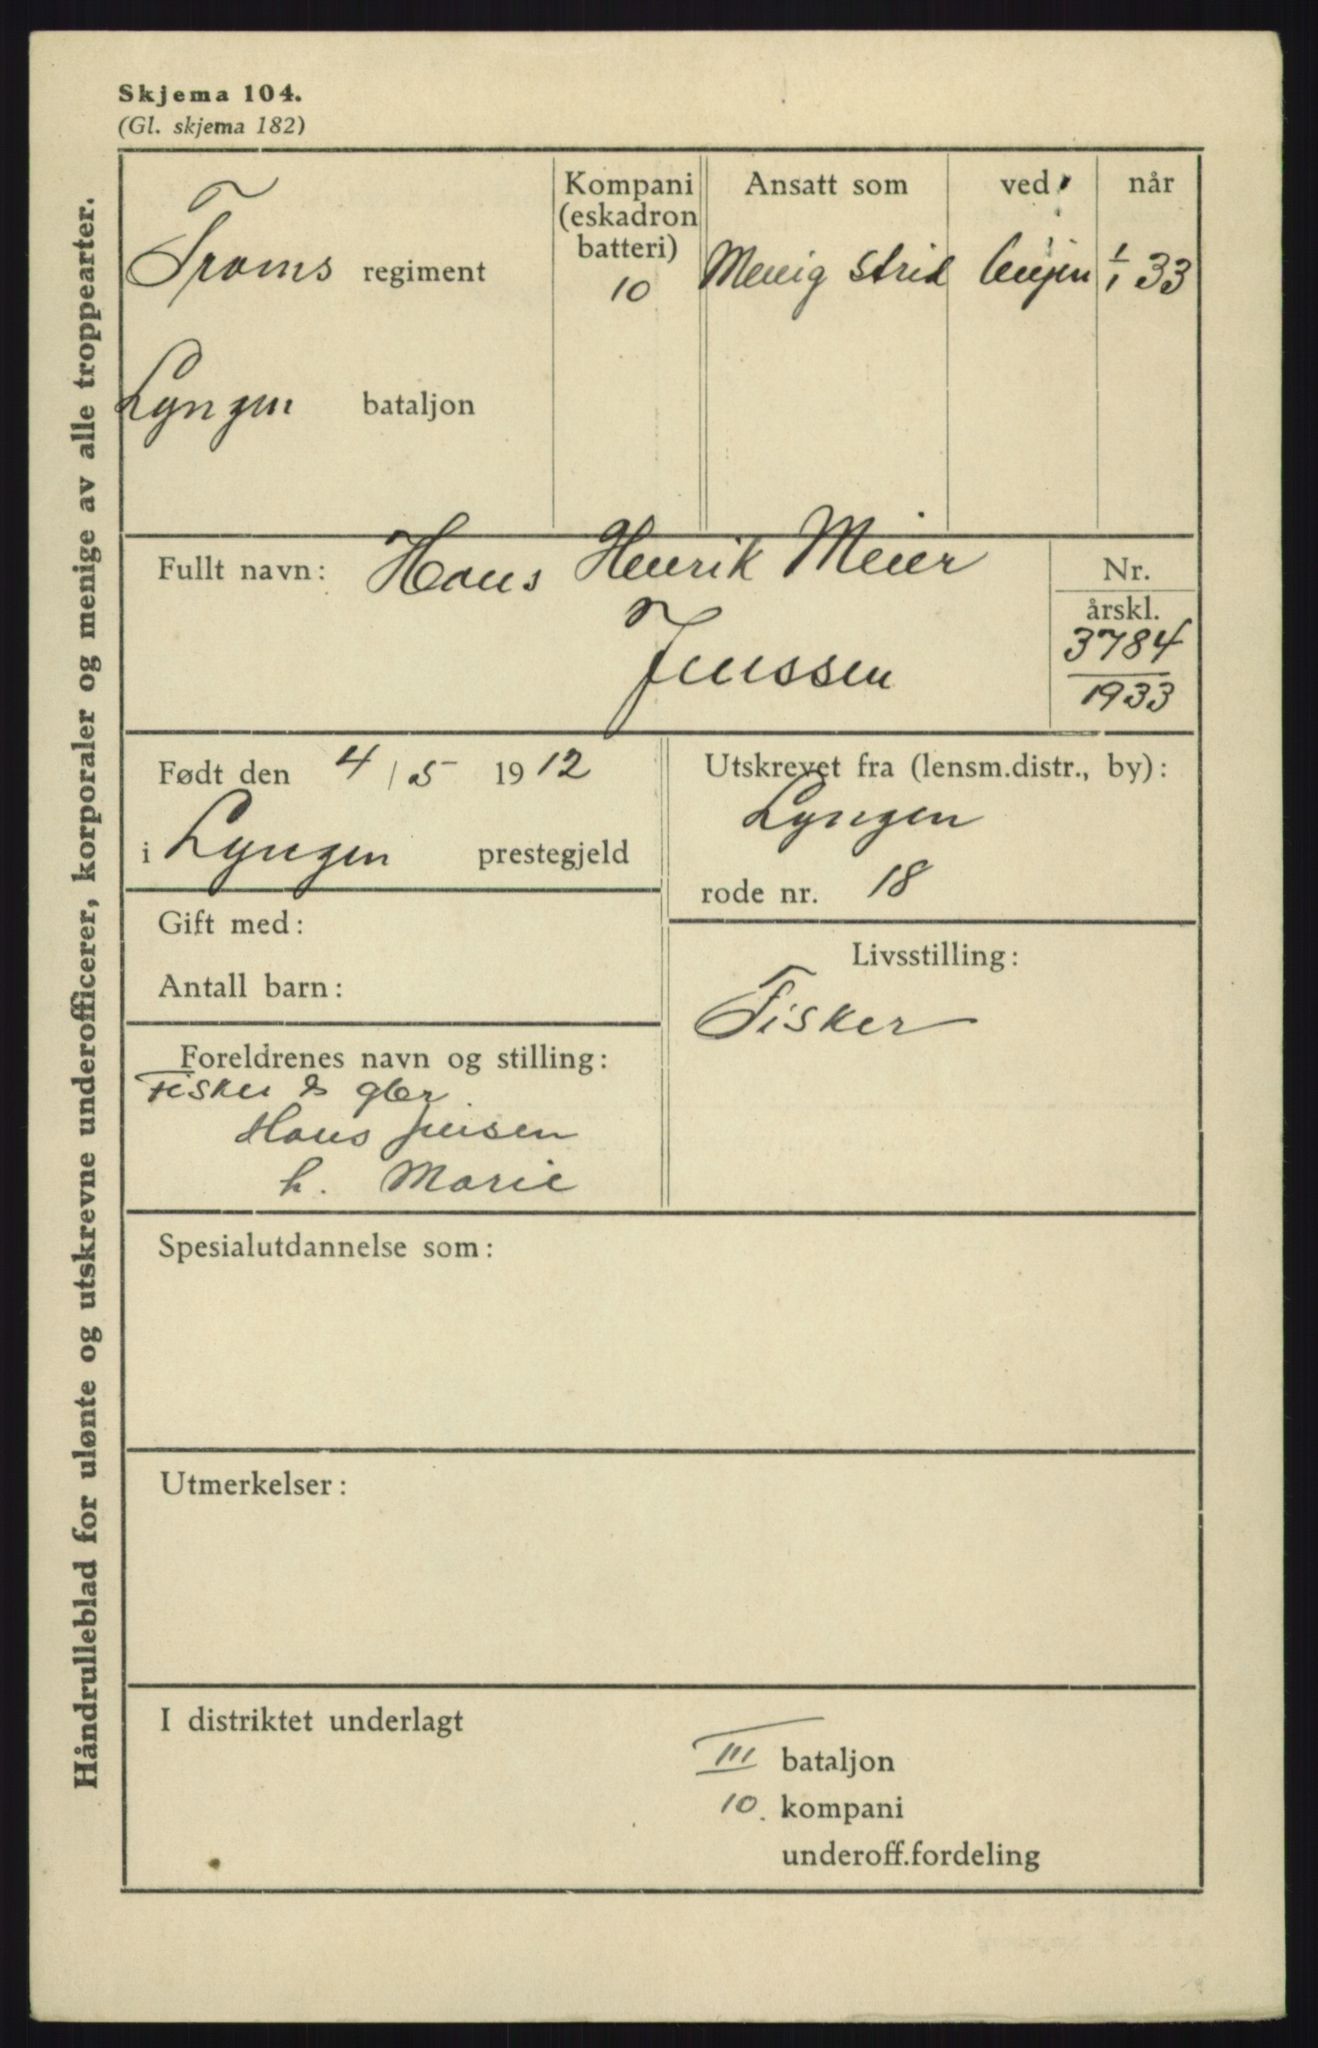 Skjema 104.
(Gl. skjema 182)
Håndrulleblad for ulønte og utskrevne underofficerer, korporaler og menige av alle troppearter.
Troms regiment
Lyngen bataljon
Kompani
(eskadron
batteri)
10
Ansatt som
Menig strid
ved
linjen
når
1/1 33
Fullt navn: Hans Henrik Meier
Jenssen
Nr.
årskl.
3784
1933
Født den 4/5 1912
i Lyngen prestegjeld
Utskrevet fra (lensm.distr., by):
Lyngen
rode nr. 18
Gift med:
Antall barn:
Livsstilling:
Fisker
Foreldrenes navn og stilling:
Fisker & gbr.
Hans Jensen
h. Marie
Spesialutdannelse som:
Utmerkelser:
I distriktet underlagt
III bataljon
10. kompani
underoff.fordeling